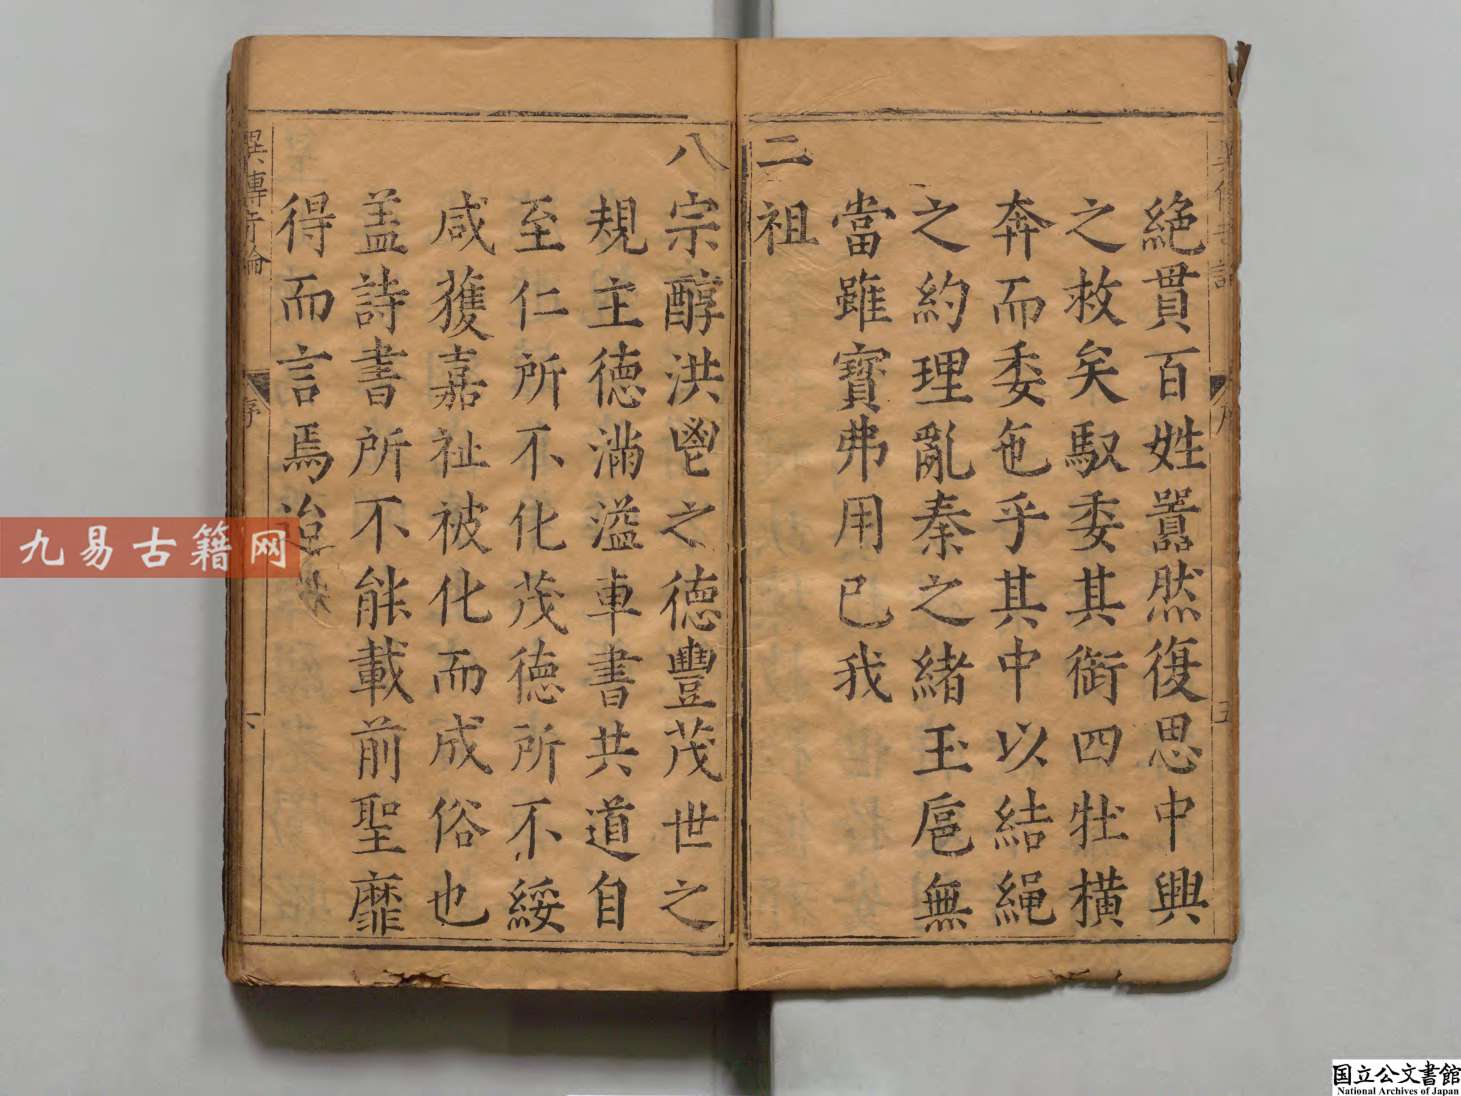 絶貫百姓囂然復思中興
之救矣馭委其銜四牡橫
奔而委㐌乎其中以結繩
之約理亂秦之緒玉巵無
當雖寶弗用已我
二祖
八宗醇洪鬯之德豐茂世之
規主德滿溢車書共道自
至仁所不化茂德所不綏
咸獲嘉祉被化而成俗也
盖詩書所不能載前聖靡
得而言焉迨
序
九易古籍网
国立公文書館
National Archives of Japan